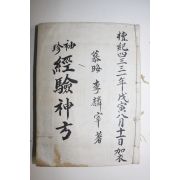 檀紀四三三一年戊寅八月十一日加衣
李麟宰著
袖珍
經驗神方